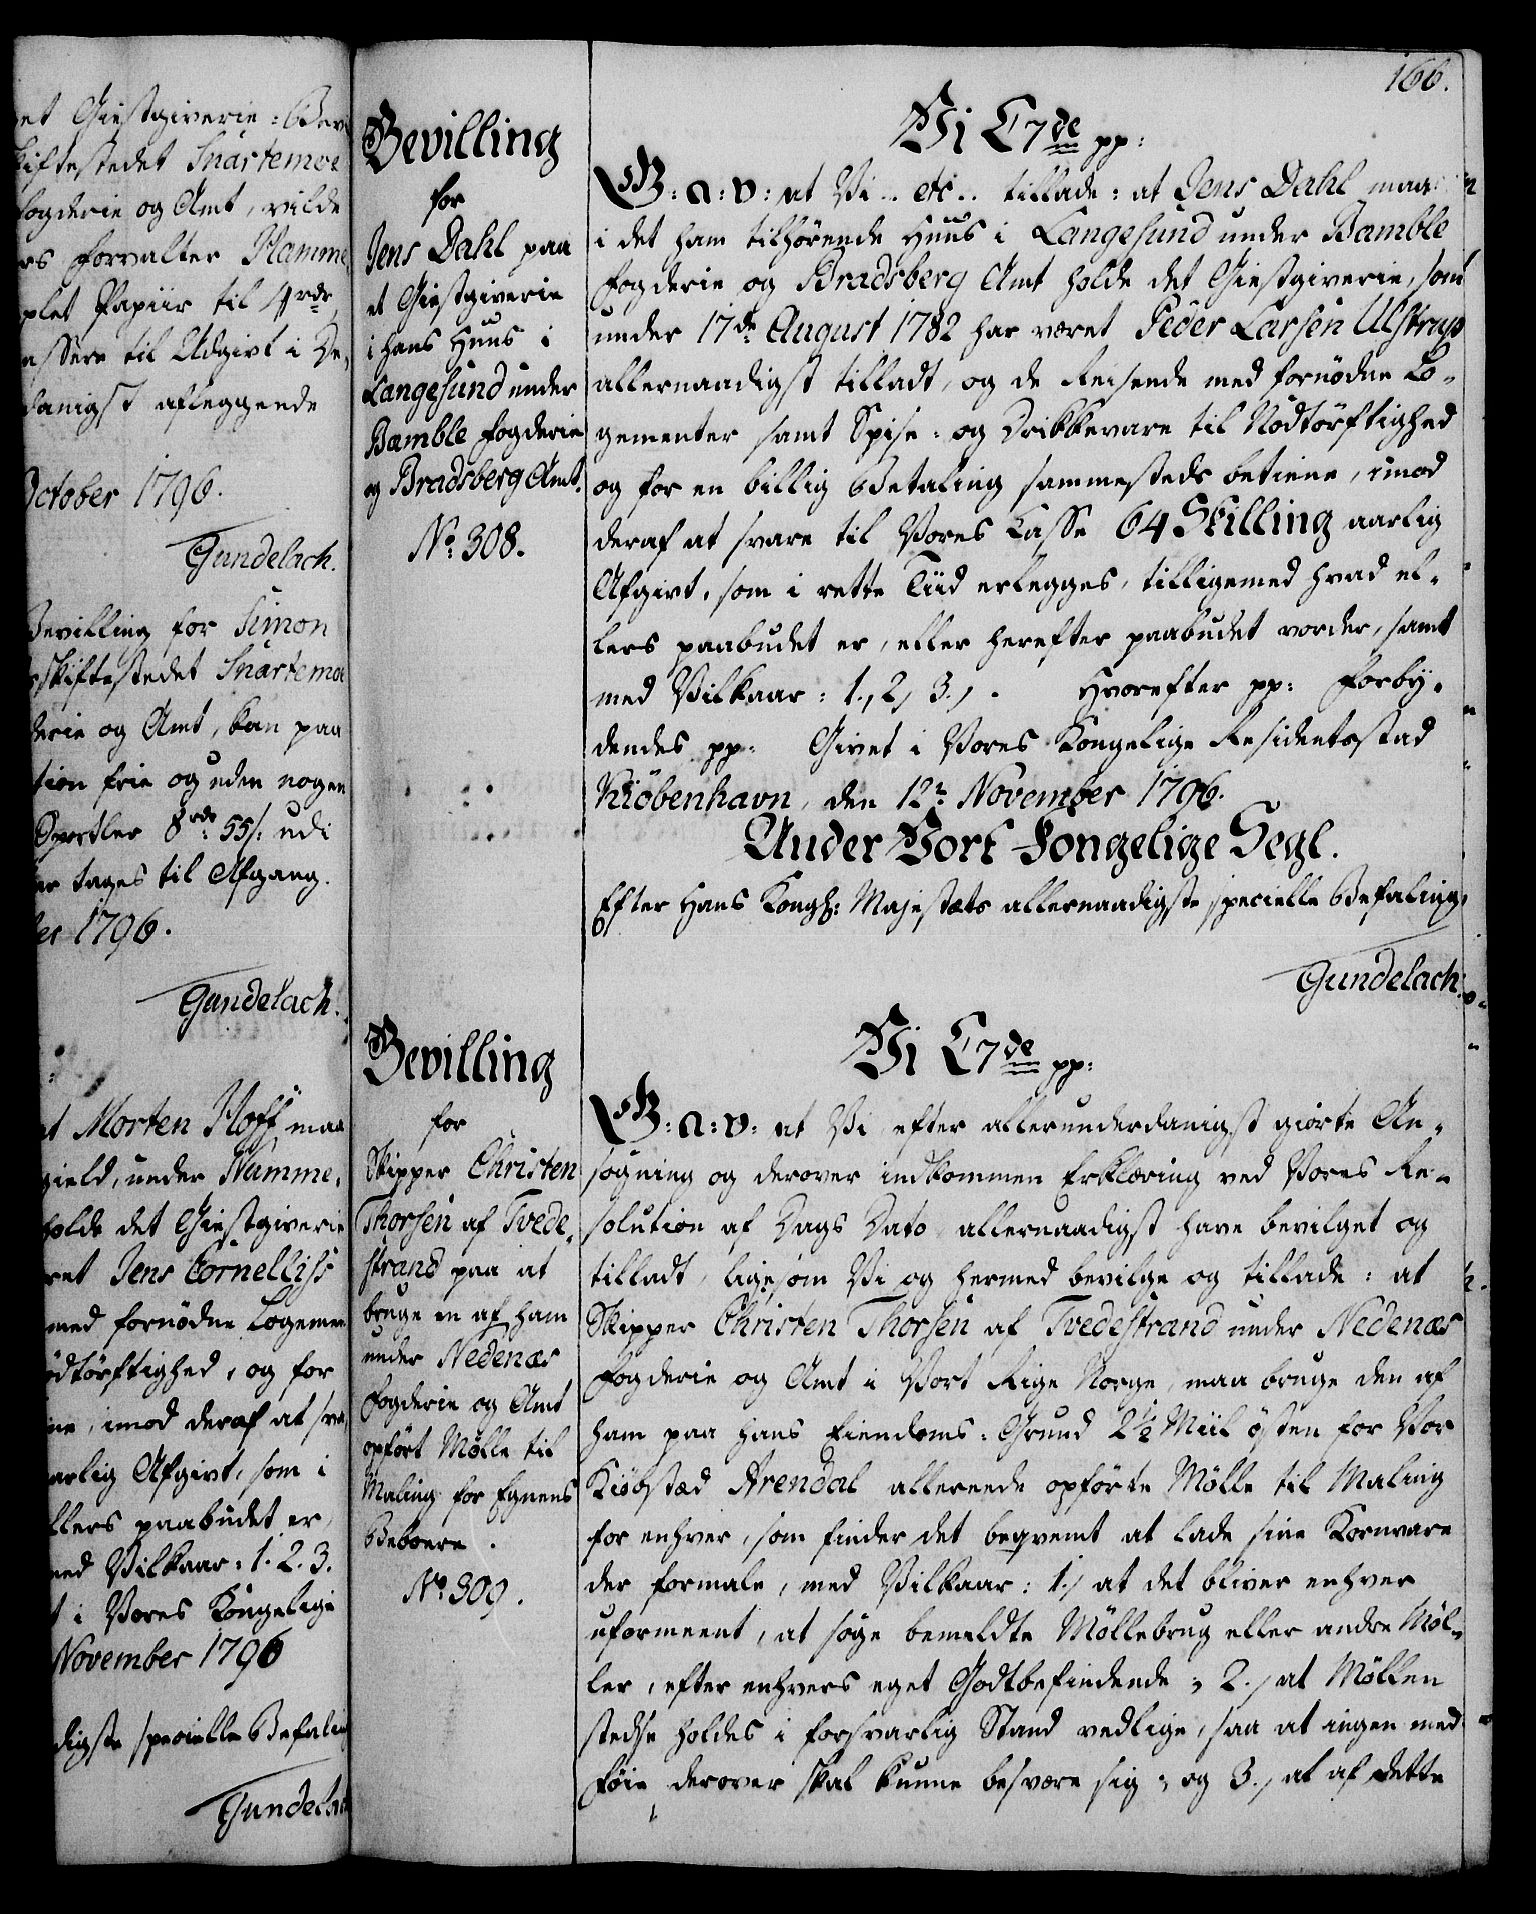 et Giestgiverie-Bev
skiftestedet Snartemoe
Fogderie og Amt, vilde
rs Forvalter Hamme,
plet Papiir til 4 rdr,
assere til Udgivt i De,
danigst aflæggende
October 1796.
Gundelach.
Bevilling for Simon
skiftestedet Snartemoe
derie og Amt, kan paa
tion frie og uden nogen
Sportler 8 rdr 55 s: udi
er tages til Afgang.
er 1796.
Gundelach.
at Morten Hoff, maa
gield, under Namme,
holde det Giestgiverie
ret Jens Cornelliss
med fornødne Logemen
ødtørftighed, og for
ne, imod deraf at sva,
arlig Afgivt, som i
llers paabudet er,
med Vilkaar: 1. 2. 3.
t i Vores Kongelige
November 1796
digste specielle Befaling
Gundelach
Bevilling
for
Jens Dahl paa
et Giestgiverie
i hans Huus i
Langesund under
Bamble Fogderie
og Bradsberg Amt.
No. 308.
Bevilling
for
Skipper Christen
Thorsen af Tvede,
strand paa at
bruge en af ham
under Nedenæs
Fogderie og Amt
opført Mølle til
Maling for Egnens
Beboere.
No. 309.
166.
Vi C7de pp:
G: a: v: at Vi .. etc .. tillade: at Jens Dahl maa
i det ham tilhørende Huus i Langesund under Bamble
Fogderie og Bradsberg Amt holde det Giestgiverie, som
under 17de August 1782 har været Peder Larsen Ulstrup
allernaadigst tilladt, og de Reisende med fornødne Lo-
gementer samt Spise- og Drikkevare til Nødtørftighed
og for en billig Betaling sammesteds betiene, imod
deraf at svare til Vores Casse 64 Skilling aarlig
Afgivt, som i rette Tiid erlegges, tilligemed hvad el-
lers paabudet er, eller herefter paabudet vorder, samt
med Vilkaar: 1., 2., 3., . Hvorefter pp: Forby-
dendes pp: Givet i Vores Kongelige Residentsstad
Kiöbenhavn, den 12te November 1796.
Under Vort Kongelige Segl.
Efter Hans Kongl: Majestæts allernaadigste specielle Befaling,
Gundelach.
Vi C7de pp:
G: a: v: at Vi efter allerunderdanigst giorte An-
søgning og derover indkommen Erklæring ved Vores Re-
solution af Dags Dato allernaadigst have bevilget og
tilladt, ligesom Vi og hermed bevilge og tillade: at
Skipper Christen Thorsen af Tvedestrand under Nedenæs
Fogderie og Amt i Vort Rige Norge, maa bruge den af
ham paa hans Eiendoms-Grund 2½ Miil østen for Vor
Kiøbstæd Arendal allerede opførte Mølle til Maling
for enhver, som finder det beqvemt at lade sine Kornvare
der formale, med Vilkaar: 1., at det bliver enhver
uformeent, at søge bemeldte Møllebrug eller andre Møl-
ler, efter enhvers eget Godtbefindende; 2., at Møllen
stedse holdes i forsvarlig Stand vedlige, saa at ingen med
Føie derover skal kunne besvære sig; og 3., at af dette